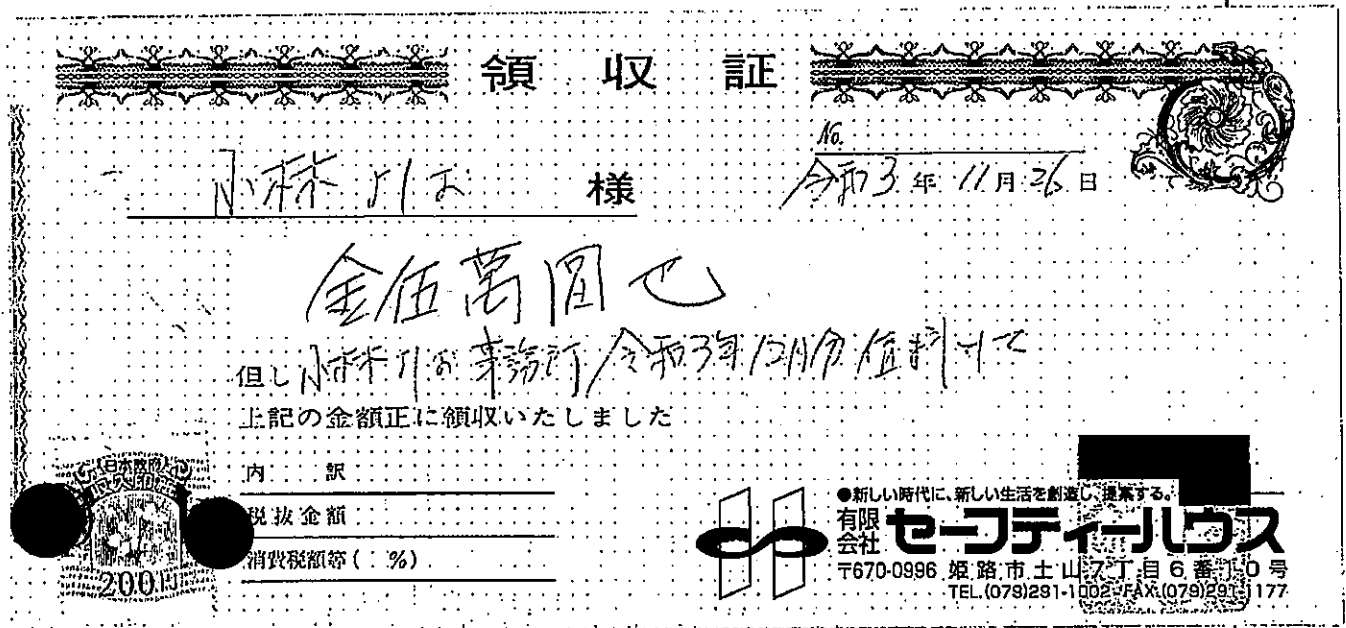 領収証
No.
小林りお 様
令和3年11月26日
金伍萬圓也
但し 小林りお事務所 令和3年12月分賃料として
上記の金額正に領収いたしました
内訳
税抜金額
消費税額等( %)
日本政府
200円
●新しい時代に、新しい生活を創造し、提案する。
有限会社 セーフティーハウス
〒670-0996 姫路市土山7丁目6番10号
TEL.(079)291-1002 FAX.(079)291-1177